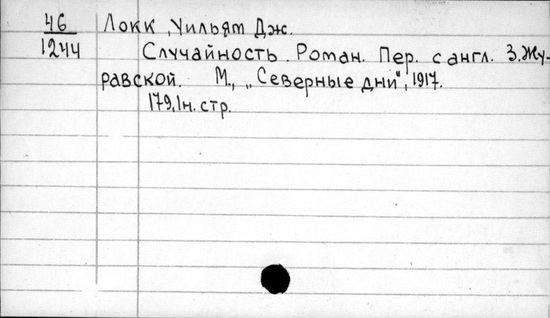 46
1244
Локк, Уильям Дж.
Случайность. Роман. Пер. с англ. З. Жу-
равской. М., „Северные дни", 1917.
179, 1 н. стр.